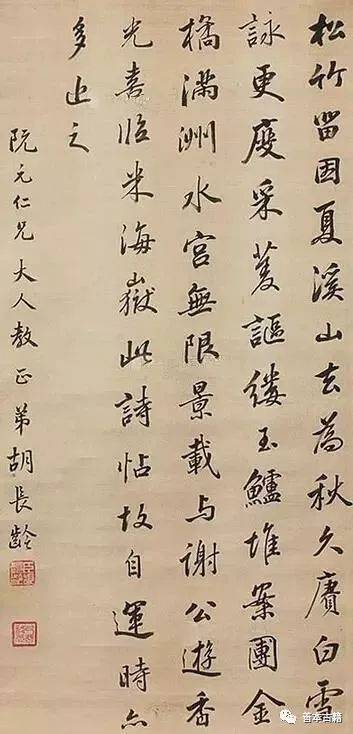 松竹留因夏溪山去為秋久賡白雪
詠更度采菱謳縷玉鱸堆案團金
橘滿洲水宮無限景載与謝公遊香
光喜臨米海嶽此詩帖故自運時亦
多近之
阮元仁兄大人教正弟胡長齡
善本古籍